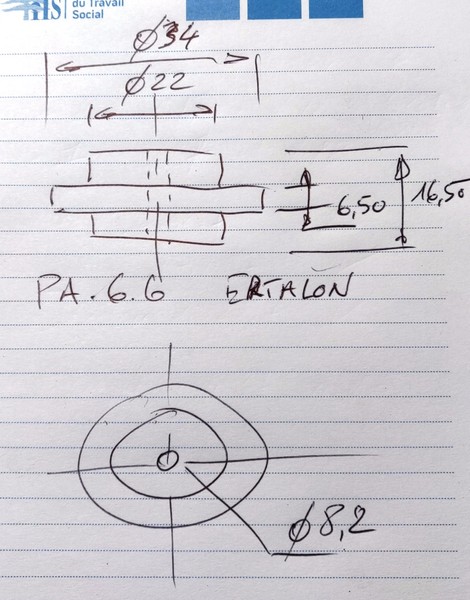 du Travail
Social
Ø34
Ø22
6,50
16,50
PA.6.6 ERTALON
Ø8,2